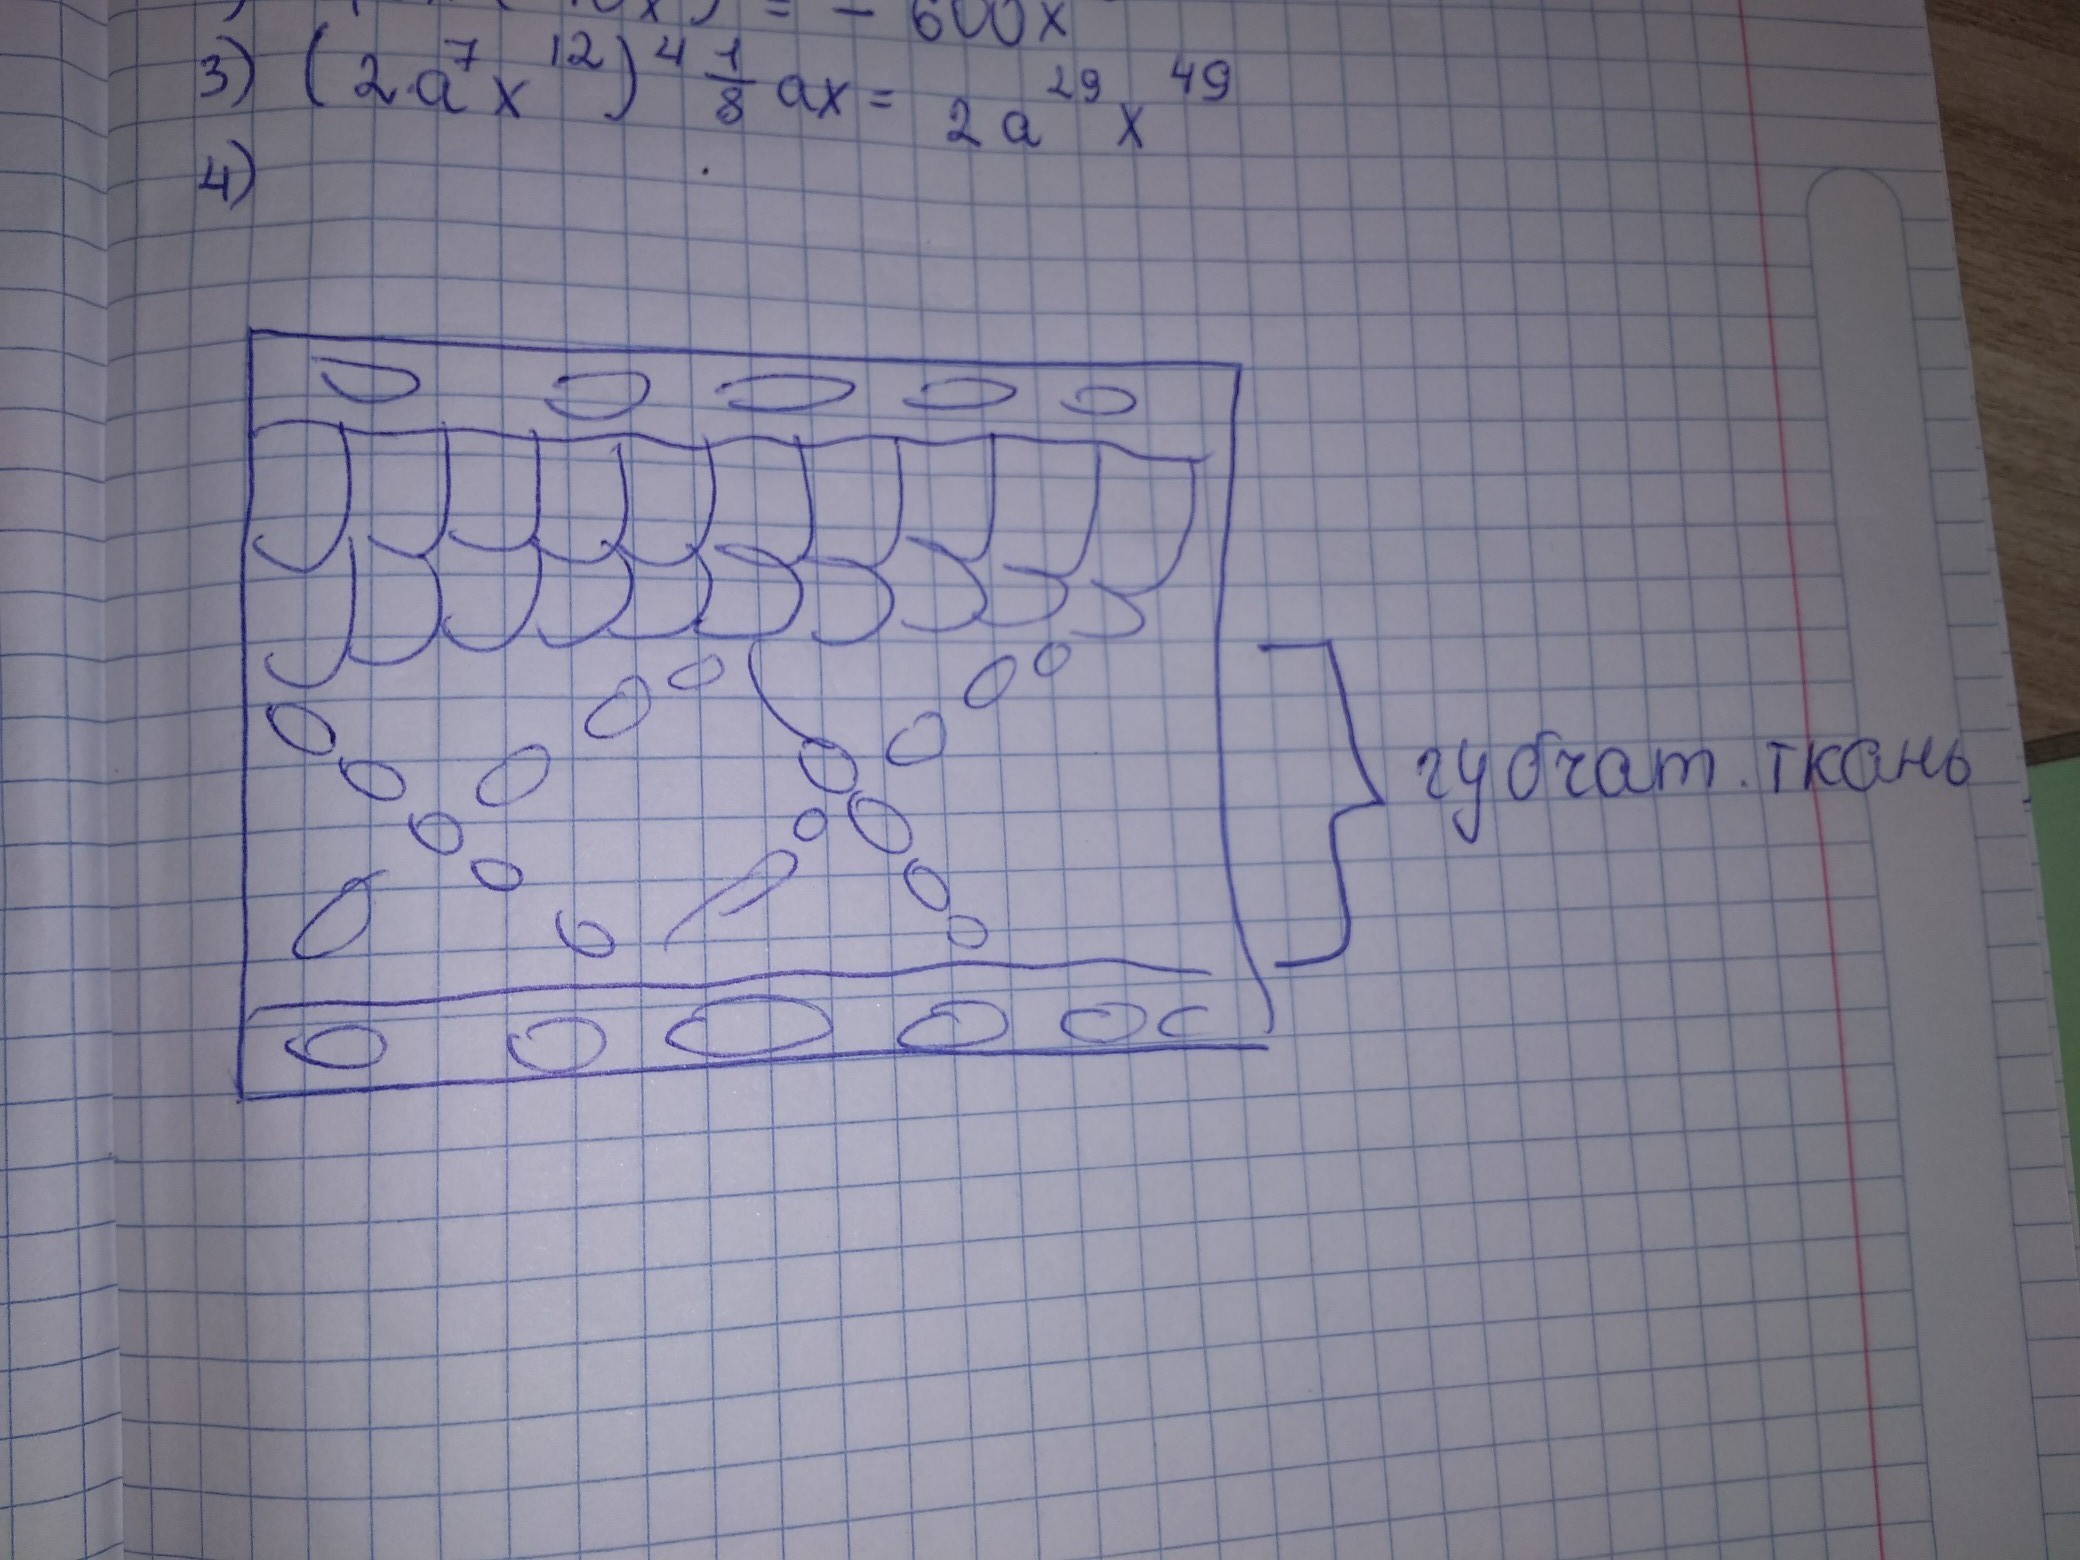 = - 600x
3) (2·a⁷x¹²)⁴ 1/8 ax = 2a²⁹x⁴⁹
4)
губчат. ткань